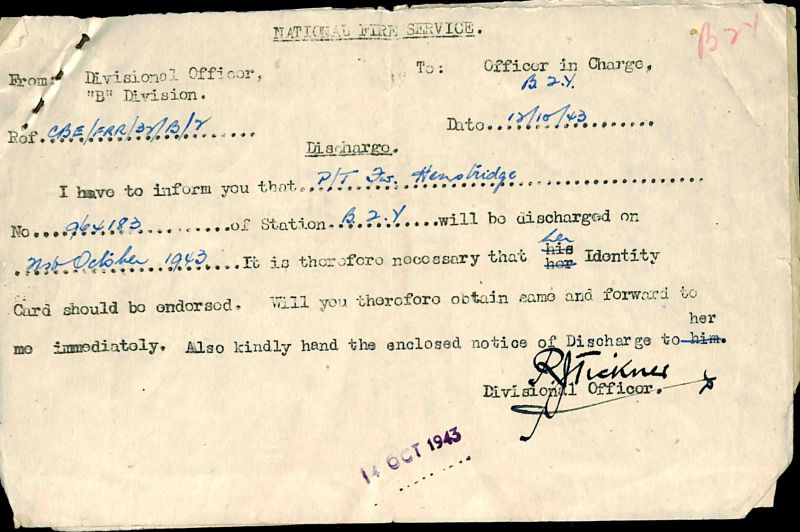 NATIONAL FIRE SERVICE.
B 2Y
From: Divisional Officer, To: Officer in Charge,
"B" Division. B.2.Y.
Ref. CBE/FRR/32/B/2 Date 12/10/43
Discharge.
I have to inform you that P/T Fw. Hensbridge
No 964183 of Station B.2.Y will be discharged on
October 1943 It is therefore necessary that her his her Identity
Card should be endorsed. Will you therefore obtain same and forward to
me immediately. Also kindly hand the enclosed notice of Discharge to him. her
R J Tickner
Divisional Officer.
14 OCT 1943